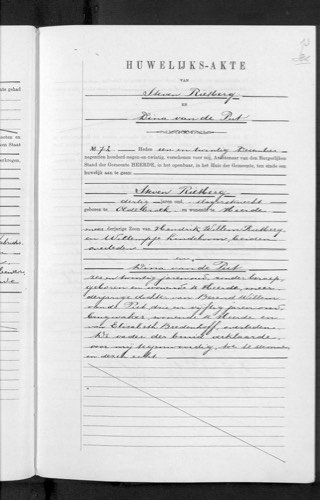 HUWELIJKS-AKTE
VAN
Steven Rietberg
EN
Dina van de Put
No. 72 Heden een en twintig December
negentien honderd negen en twintig, verschenen voor mij, Ambtenaar van den Burgerlijken
Stand der Gemeente HEERDE, in het openbaar, in het Huis der Gemeente, ten einde een
huwelijk aan te gaan:
Steven Rietberg
dertig jaren oud,
geboren te Oldebroek, en wonende te Heerde
meerderjarige Zoon van Hendrik Willem Rietberg
en Willempje beiden
overleden
Dina van de Put
zes en twintig jaren oud, zonder beroep,
geboren en wonende te Heerde, meer
derjarige dochter van Berend Willem
van de Put, drie en vijftig jaren oud,
wonende te Heerde en
van Elisabeth Bredenhoff, overleden.
De vader der bruid verklaarde,
voor mij tegenwoordig, toe te stemmen
in deze echt.